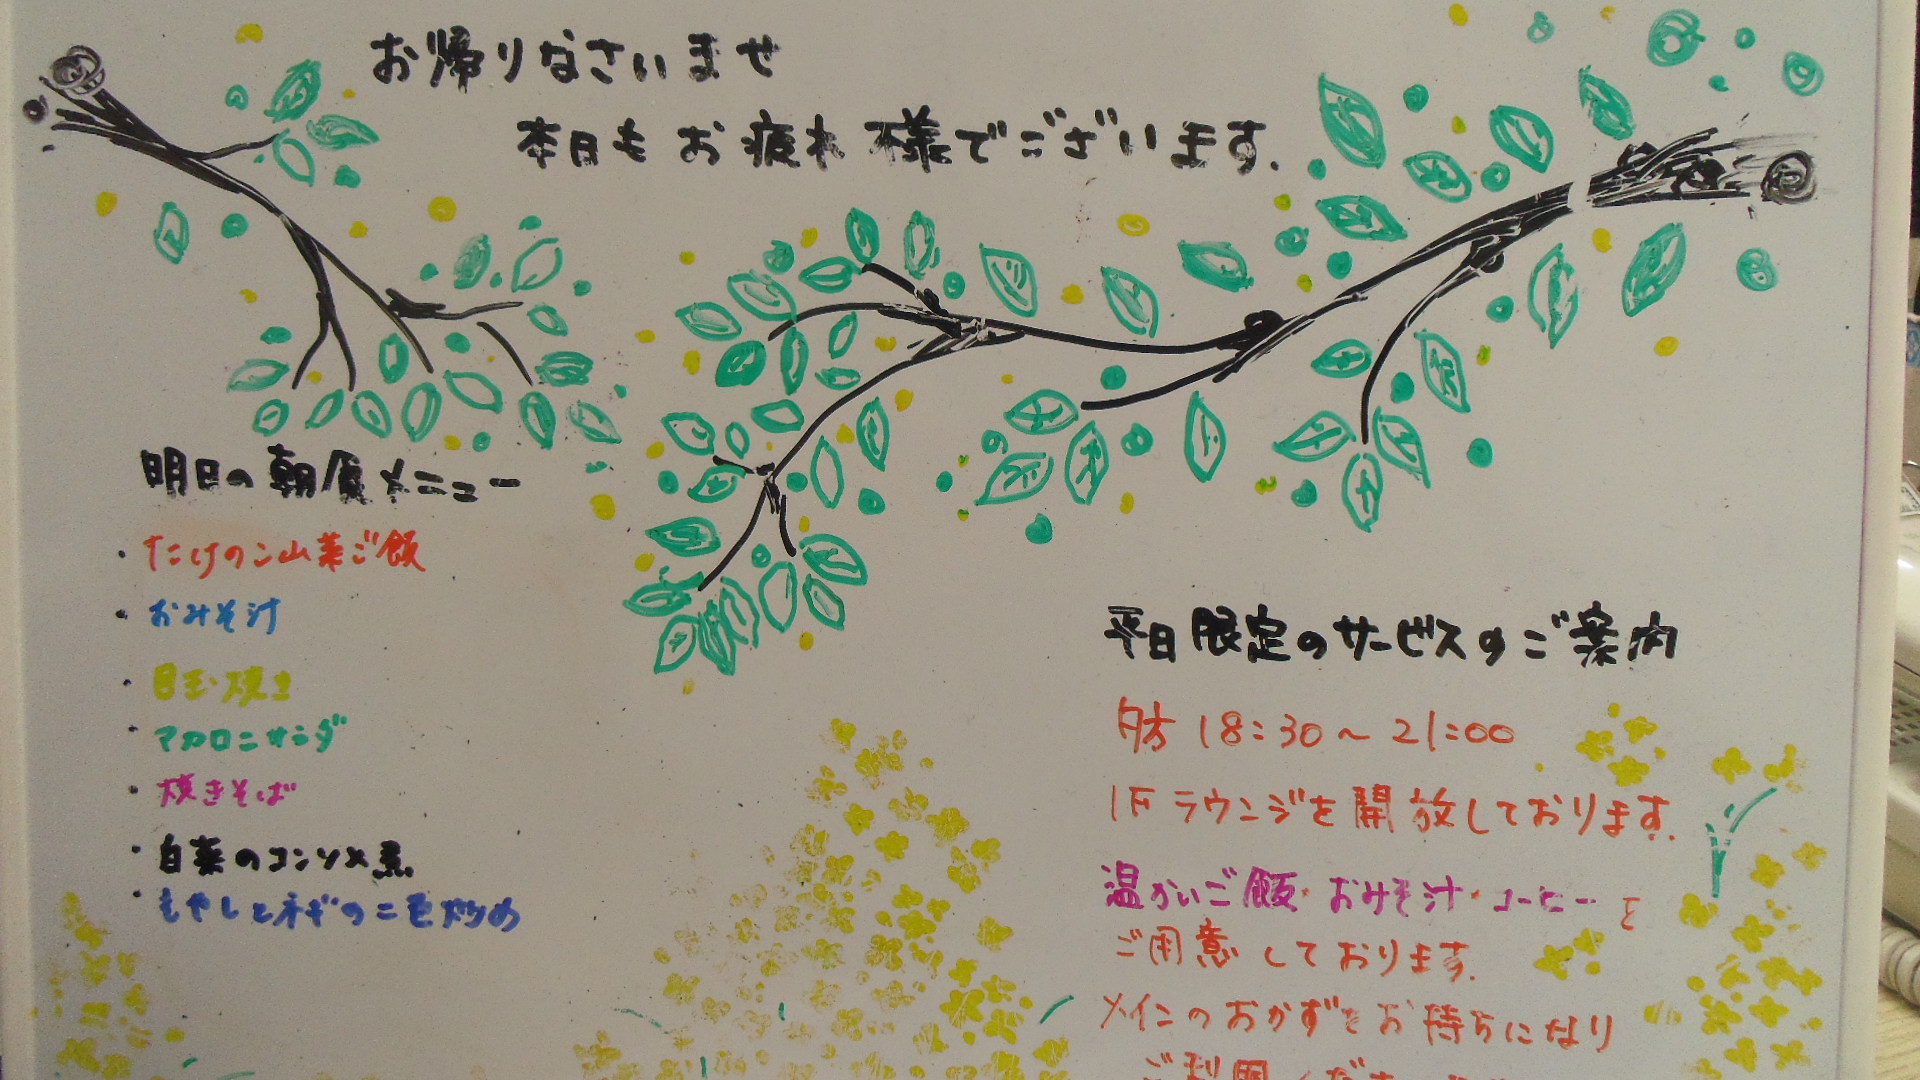 お帰りなさいませ
本日もお疲れ様でございます.
明日の朝食メニュー
・たけのこ山菜ご飯
・おみそ汁
・目玉焼き
・マカロニサラダ
・焼きそば
・白菜のコンソメ煮
・もやしとネギの
平日限定のサービスのご案内
夕方 18:30～21:00
1Fラウンジを開放しております.
温かいご飯・おみそ汁・コーヒーを
ご用意しております.
メインのおかずをお持ちになり
ご利用くださ